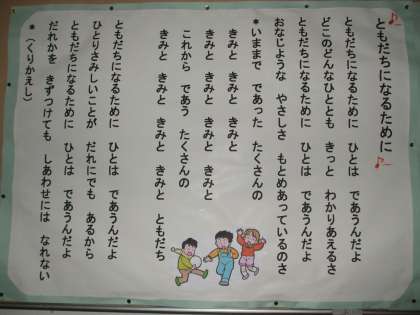 ともだちになるために
ともだちになるために ひとは であうんだよ
どこのどんなひととも きっと わかりあえるさ
ともだちになるために ひとは であうんだよ
おなじような やさしさ もとめあっているのさ
*いままで であった たくさんの
きみと きみと きみと きみと
きみと きみと きみと
これから であう たくさんの
きみと きみと きみと きみと ともだち
ともだちになるために ひとは であうんだよ
ひとりさみしいことが だれにでも あるから
ともだちになるために ひとは であうんだよ
だれかを きずつけても しあわせには なれない
*(くりかえし)